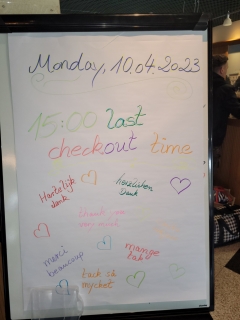 Monday, 10.04.2023
15:00 last
checkout time
Hartelijk
dank
herzlichen
Dank
thank you
very much
merci
beaucoup
mange
takk
tack så
mycket